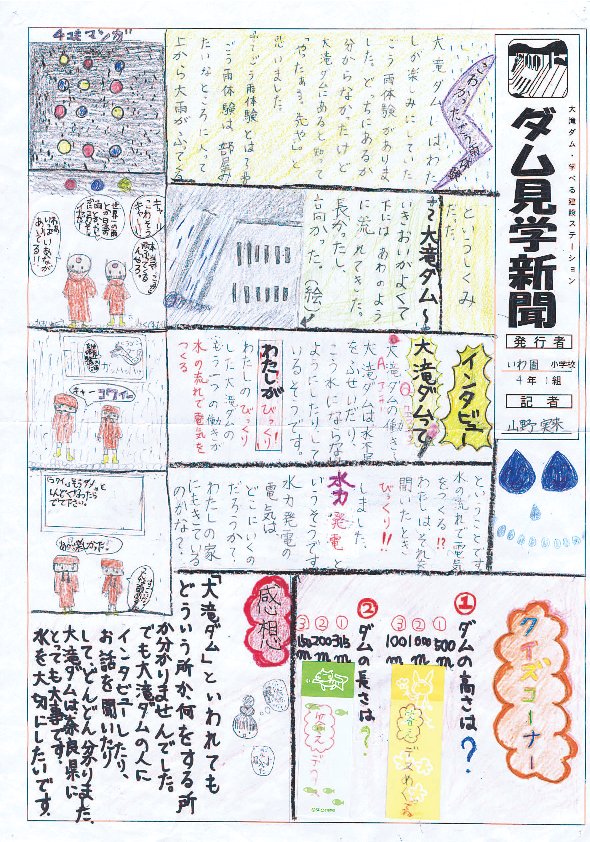 大滝ダム・学べる建設ステーション
ダム見学新聞
発行者
いわ園 小学校
4年1組
記者
山野 実来
大滝ダムはわた
しが楽しみにしていた
ごう雨体験がありま
した。どっちにあるか
分からなかたけど
大滝ダムにあると知って
思いました。
ごう雨体験は部屋み
たいなところに入って
上から大雨がふってくる
というしくみ
だった。
大滝ダム
いきおいがよくて
下にはあわのよう
に流れてきた。
長かったし
高かった。(絵)
インタビュー
大滝ダムって
大滝ダムの働き
大滝ダムは水不足
をふせいだり、
こう水にならない
ようにしたりして
いるそうです。
わたしが
びっくり!
した大滝ダムの
もう一つの働きが
水の流れで電気を
つくる
ということです。
水の流れで電気
をつくる!?
わたしはそれを
聞いたとき
びっくり!!
しました。
水力発電と
いうそうです。
水力発電の
電気は
どこにいくの
だろうか?、
わたしの家
にもきている
のかな?、
クイズコーナー
① ダムの高さは?
① 500m
② 1000m
③ 100m
答え
② ダムの長さは?
① 315m
② 200m
③ 150m
答え
感想
「大滝ダム」といわれても
どういう所か、何をする所
か分かりませんでした。
でも大滝ダムの人に
インタビューしたり、
お話を聞いたり
して、どんどん分かりました。
大滝ダムは奈良県に
とっても大事です。
水を大切にしたいです。
4コママンガ
キャー
コワイー